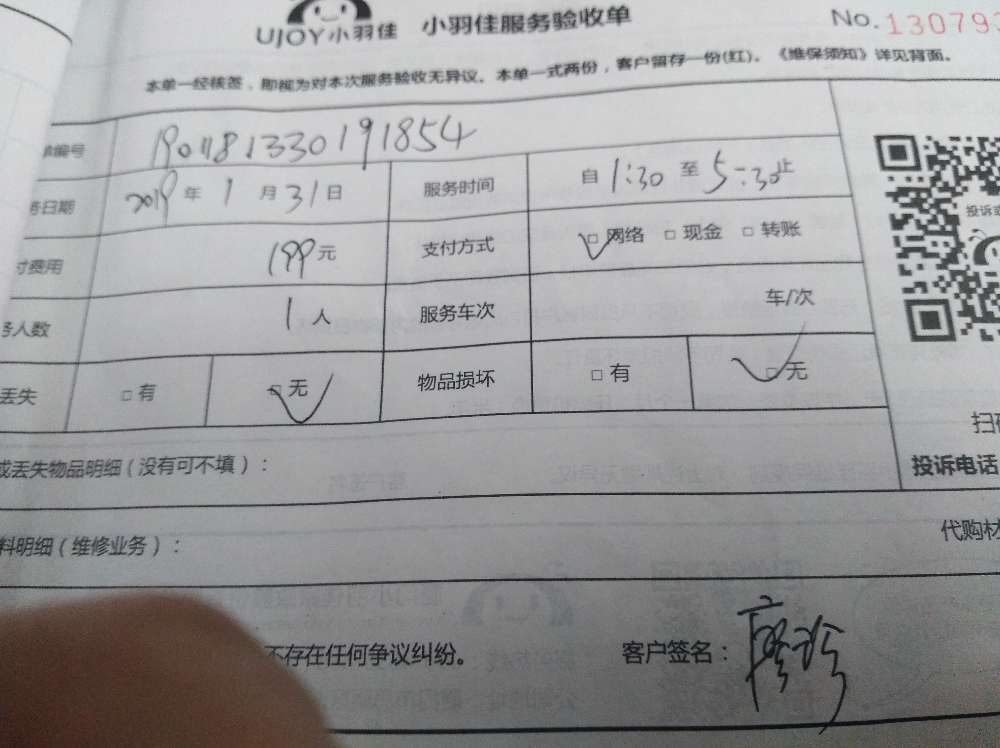 UJOY小羽佳 小羽佳服务验收单 No.13079
本单一经核签，即视为对本次服务验收无异议。本单一式两份，客户留存一份(红)。《维保须知》详见背面。
编号 190118133019 1854
日期 2019年1月31日 服务时间 自1:30至5:30止
费用 199元 支付方式 □网络 □现金 □转账
人数 1人 服务车次 车/次
丢失 □有 □无 物品损坏 □有 □无
投诉
扫
或丢失物品明细（没有可不填）： 投诉电话
料明细（维修业务）： 代购材
不存在任何争议纠纷。 客户签名：廖珍